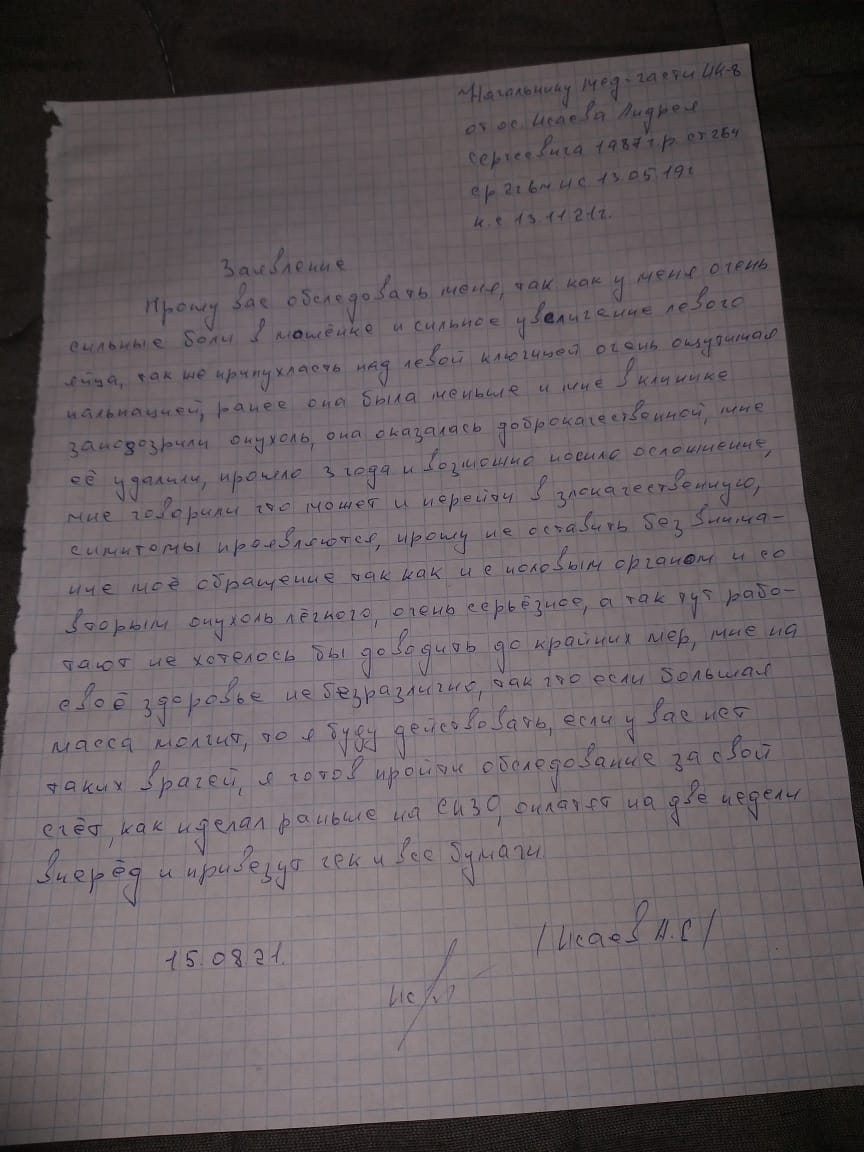 Начальнику мед-части ИК-8
от ос. Исаева Андрея
Сергеевича 1987 г.р. ст 264
ср 2г 6м нс 13.05 19г
к.с 13 11 21г.
Заявление
Прошу вас обследовать меня, так как у меня очень
сильные боли в мошёнке и сильное увеличение левого
яйца, так же припухласть над левой ключицей очень ощутимая
пальпацией, ранее она была меньше и мне в клинике
заподозрили опухоль, она оказалась доброкачественной, мне
её удалили, прошло 3 года и возможно пошло осложнение,
мне говорили что может и перейти в злокачественную,
симптомы проявляются, прошу не оставить без внима-
ние моё обращение так как и с половым органом и со
вторым опухоль лёгкого, очень серьёзное, а так тут рабо-
тают не хотелось бы доводить до крайних мер, мне на
своё здоровье не безразлично, так что если большая
масса молчит, то я буду действовать, если у вас нет
таких врачей, я готов пройти обследование за свой
счёт, как и делал раньше на СИЗО, оплатят на две недели
вперёд и привезут чек и все бумаги.
15.08 21.
/Исаев А.С/